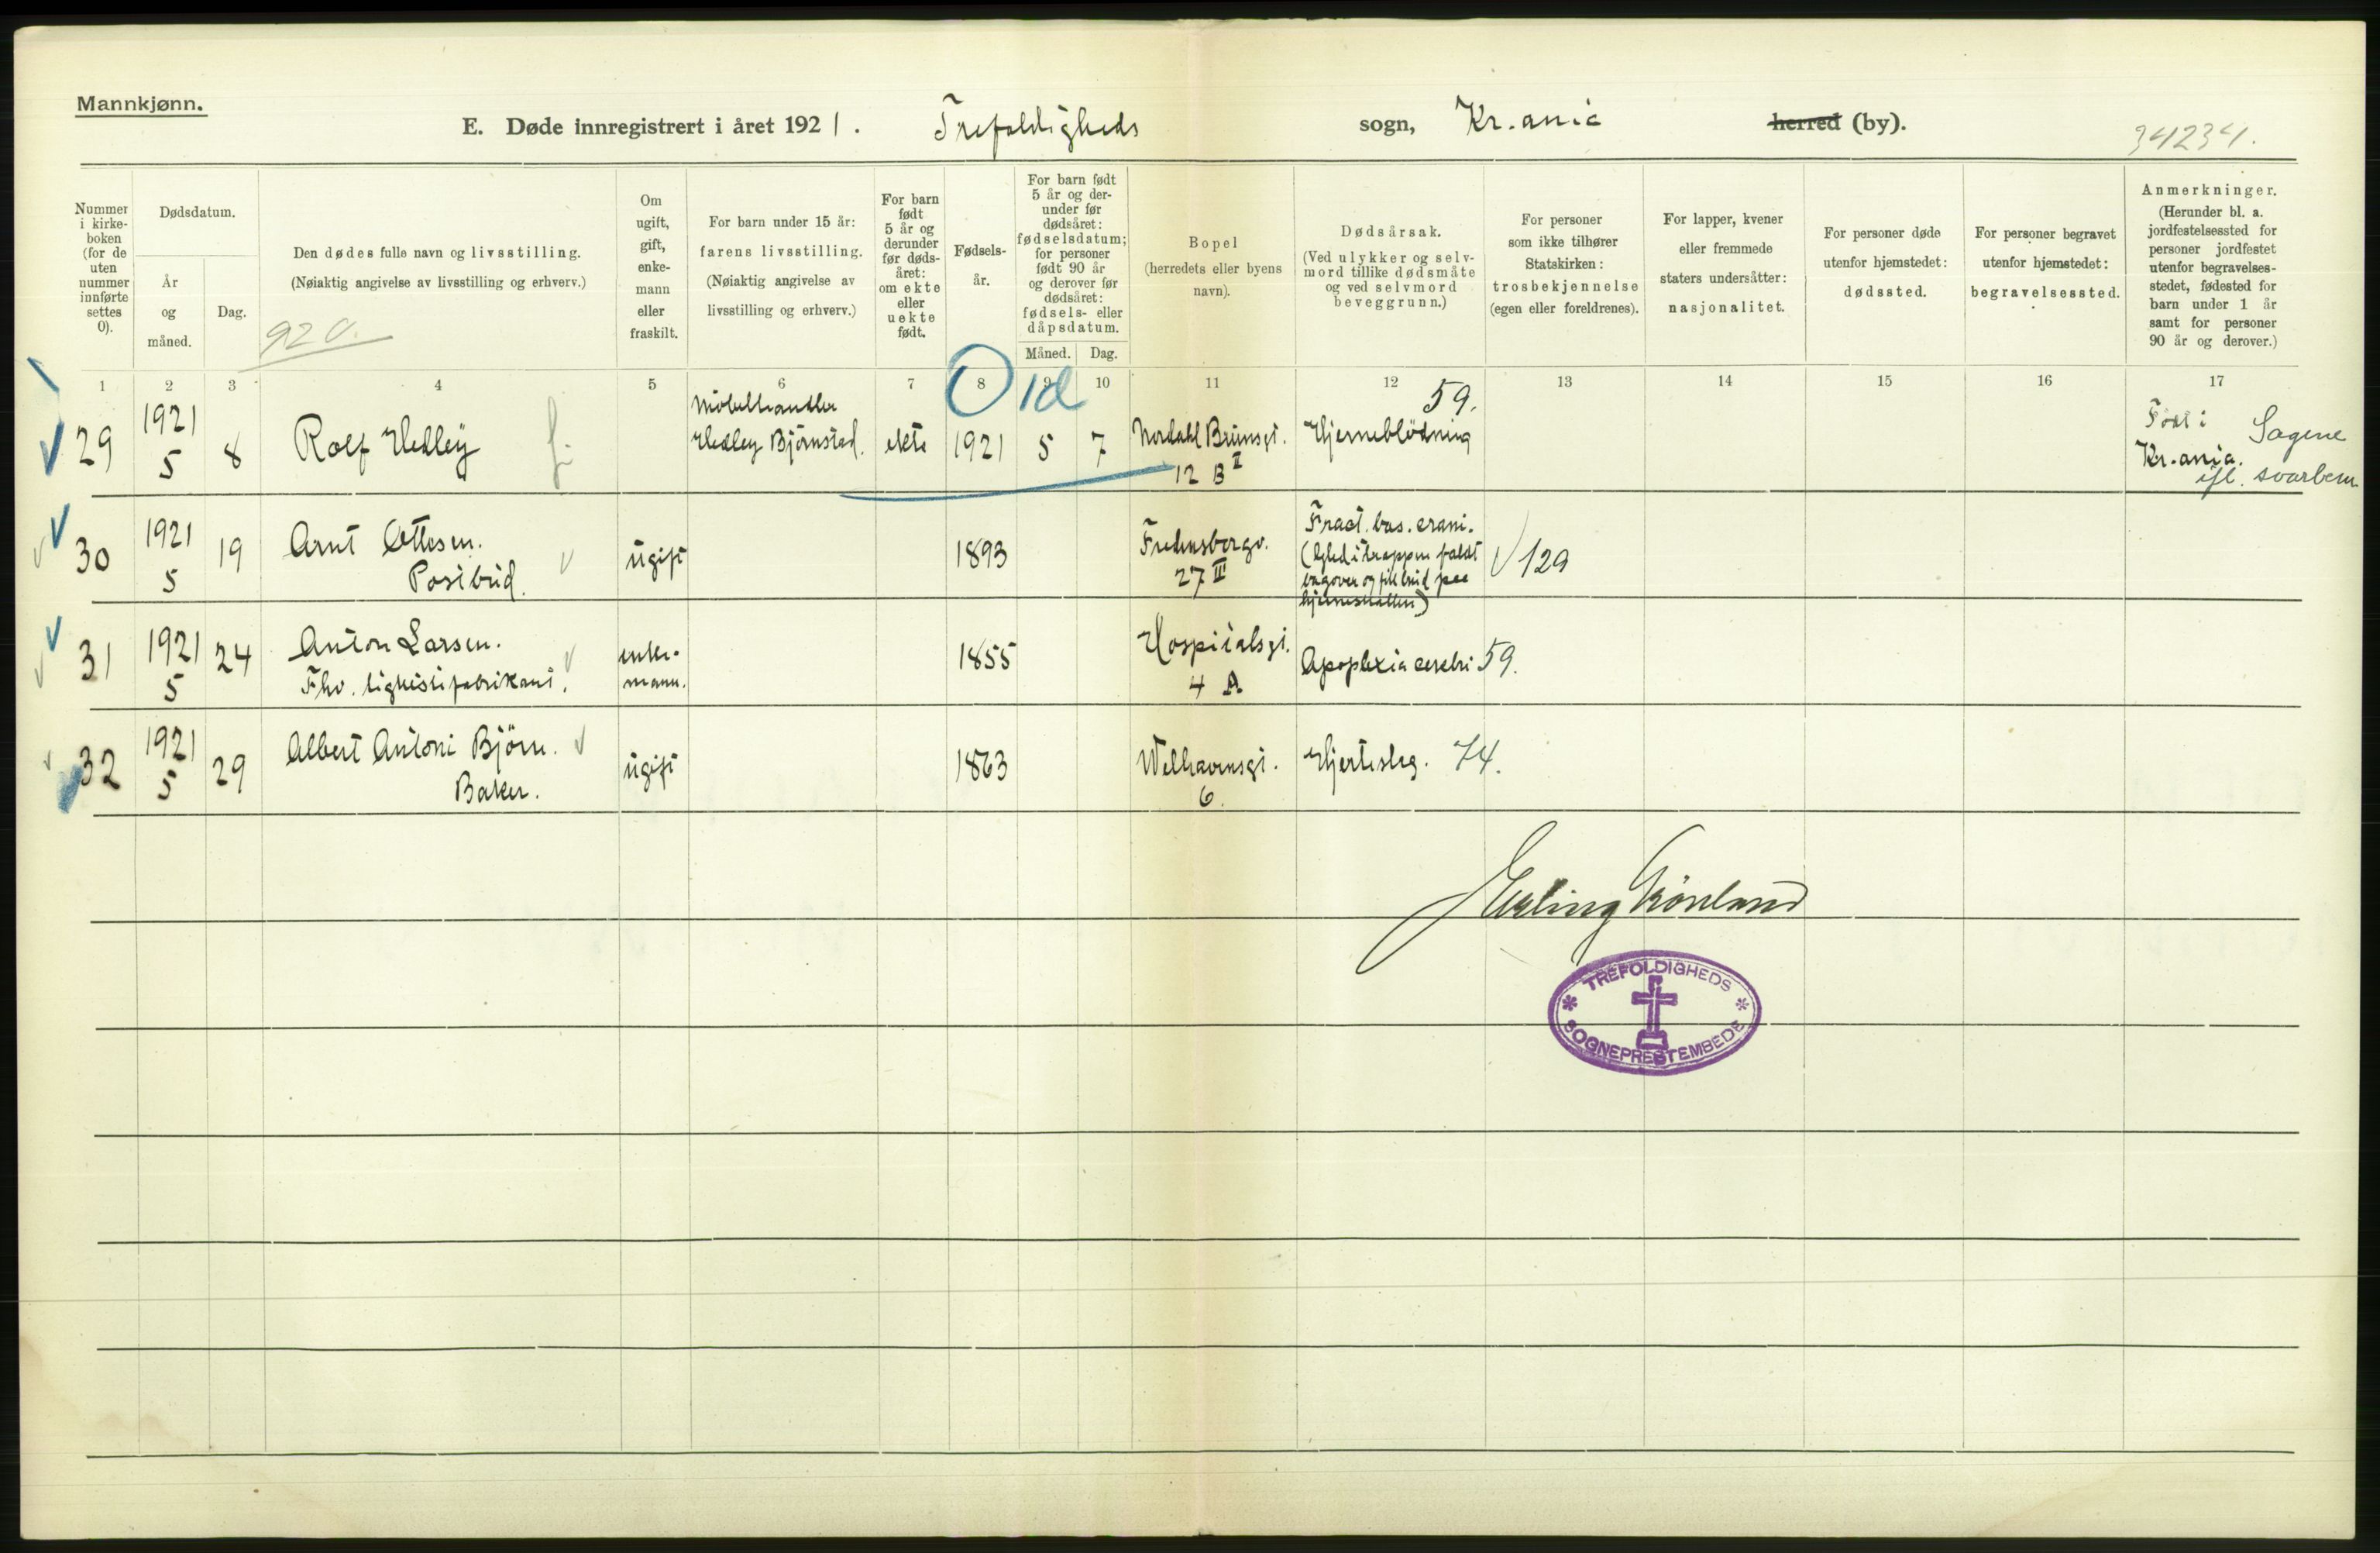 Mannkjønn.
E. Døde innregistrert i året 1921. Trefoldigheds sogn, Kr.ania herred (by).
34234.
Nummer i kirke-boken (for de uten nummer innførte settes 0).
Dødsdatum.
År og måned.
Dag.
Den dødes fulle navn og livsstilling.
(Nøiaktig angivelse av livsstilling og erhverv.)
920.
Om ugift, gift, enke-mann eller fraskilt.
For barn under 15 år:
farens livsstilling.
(Nøiaktig angivelse av livsstilling og erhverv.)
For barn født 5 år og derunder før døds-året: om ekte eller uekte født.
Fødsels-år.
For barn født 5 år og der-under før dødsåret: fødselsdatum; for personer født 90 år og derover før dødsåret: fødsels- eller dåpsdatum.
Måned.
Dag.
Bopel
(herredets eller byens navn).
Dødsårsak.
(Ved ulykker og selv-mord tillike dødsmåte og ved selvmord beveggrunn.)
For personer som ikke tilhører Statskirken:
trosbekjennelse
(egen eller foreldrenes).
For lapper, kvener eller fremmede staters undersåtter:
nasjonalitet.
For personer døde utenfor hjemstedet:
dødssted.
For personer begravet utenfor hjemstedet:
begravelsessted.
Anmerkninger.
(Herunder bl. a. jordfestelsessted for personer jordfestet utenfor begravelses-stedet, fødested for barn under 1 år samt for personer 90 år og derover.)
1 2 3 4 5 6 7 8 9 10 11 12 13 14 15 16 17
1d
29 1921 5 8 Rolf Hedley
Möbelhandler
Hedley Björnstad. ekte 1921 5 7 Nordahl Brunsgt. 12 B II
Hjerneblödning 59.
Født i Kr.ania. Sagene ifl. svarbrev
30 1921 5 19 Arnt Ottesen.
Postbud.
ugift 1893 Fredensborgv. 27 III
Fract. bas. crani.
(Gled i trappen faldt
bagover og fik brud paa
hjerneskallen) 129
31 1921 5 24 Anton Larsen.
Fhv. ligkistefabrikant.
enke-
mann. 1855 Hospitalsgt. 4 A
Apoplexia cerebri 59.
32 1921 5 29 Albert Antoni Björn.
Baker.
ugift 1863 Welhavensgt. 6.
Hjerteslag. 74.
Erling Grönland
TREFOLDIGHEDS
SOGNEPRESTEMBEDE